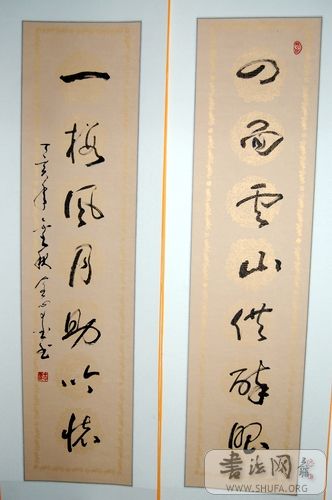 四面云山供醉眼
一楼风月助吟怀
丁亥年
书法网
WWW.SHUFA.ORG